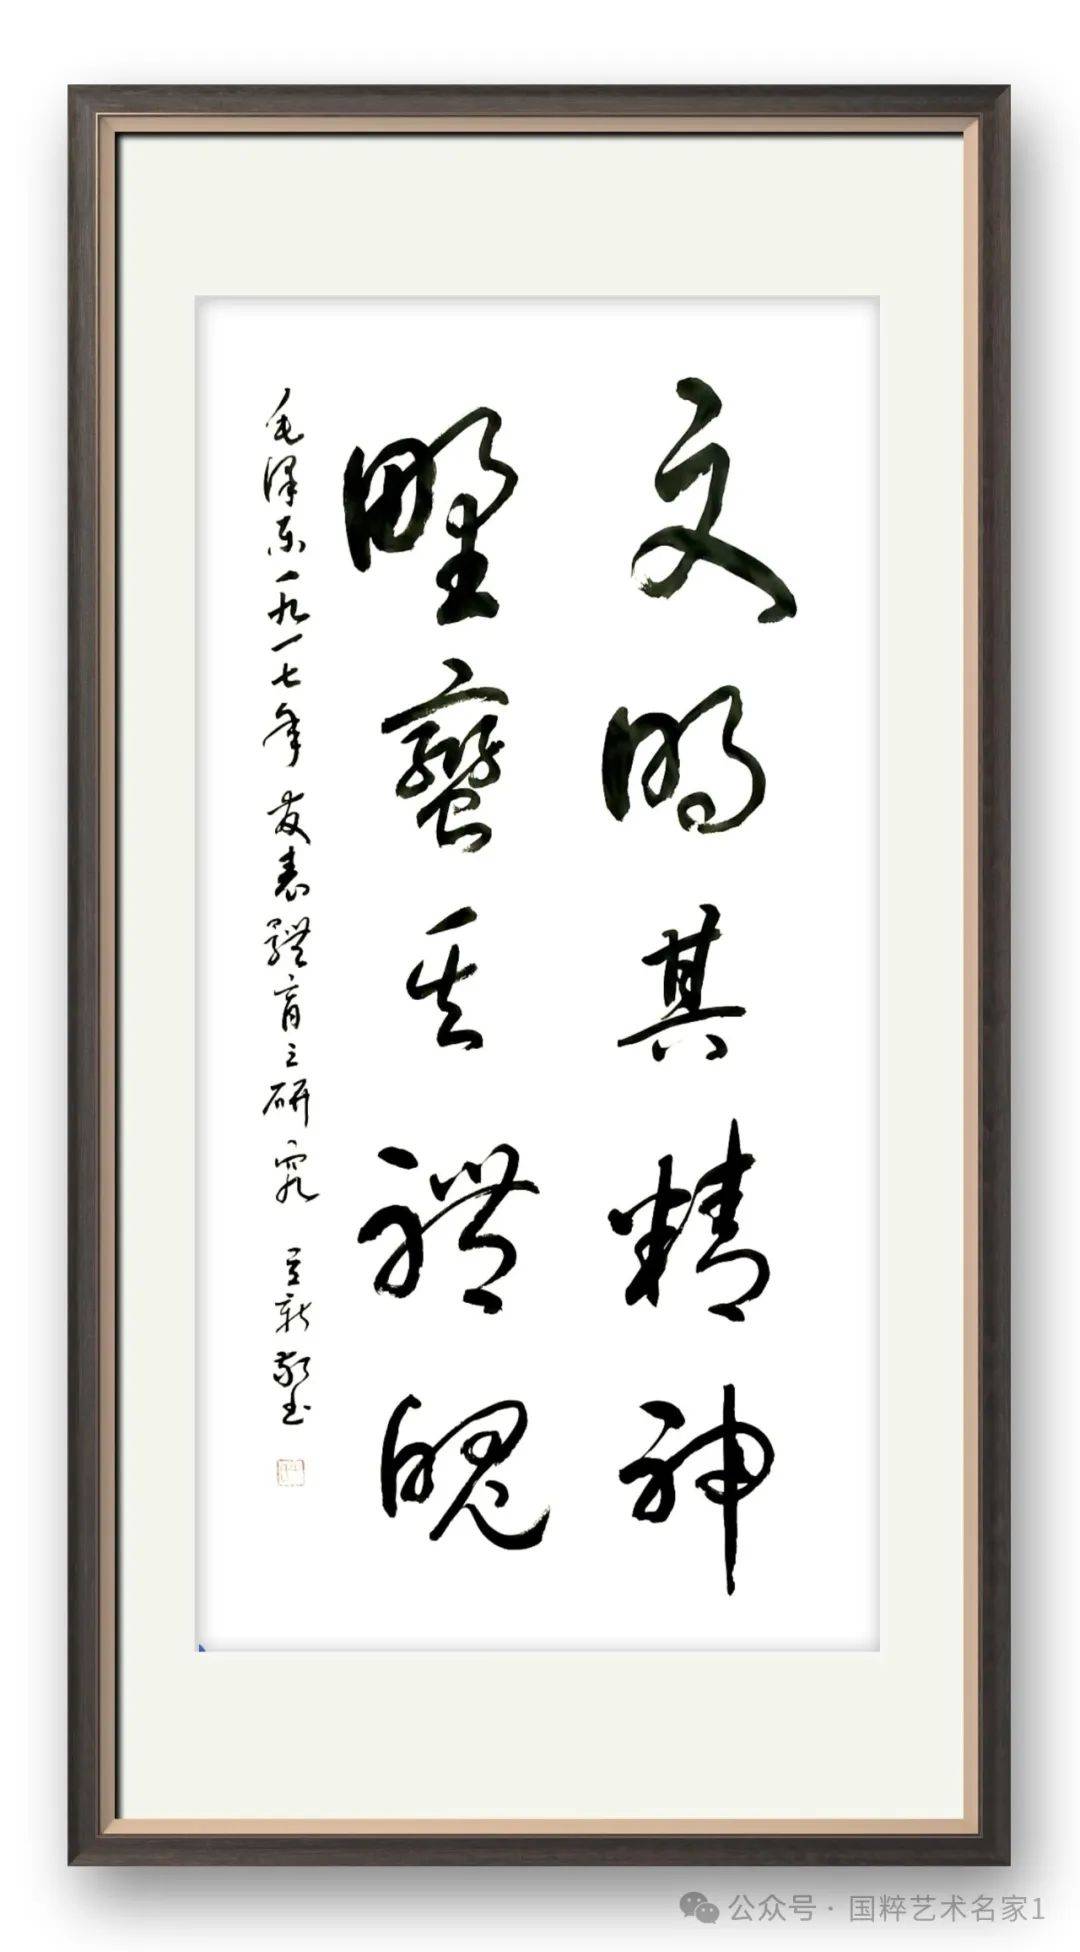 文明其精神
野蠻其體魄
毛泽东一九一七年發表體育之研究 立新敬书
公众号·国粹艺术名家1